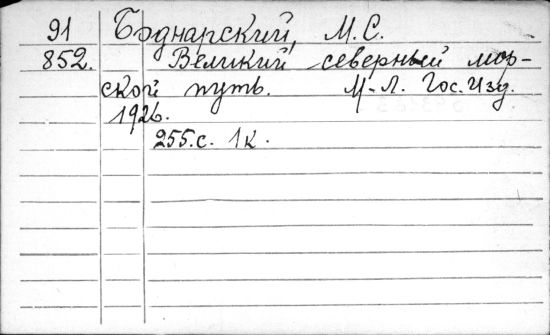 91 Боднарский, М.С.
852. Великий северный мор-
ской путь. М-Л. Гос.Изд.
1926.
255.с. 1к.